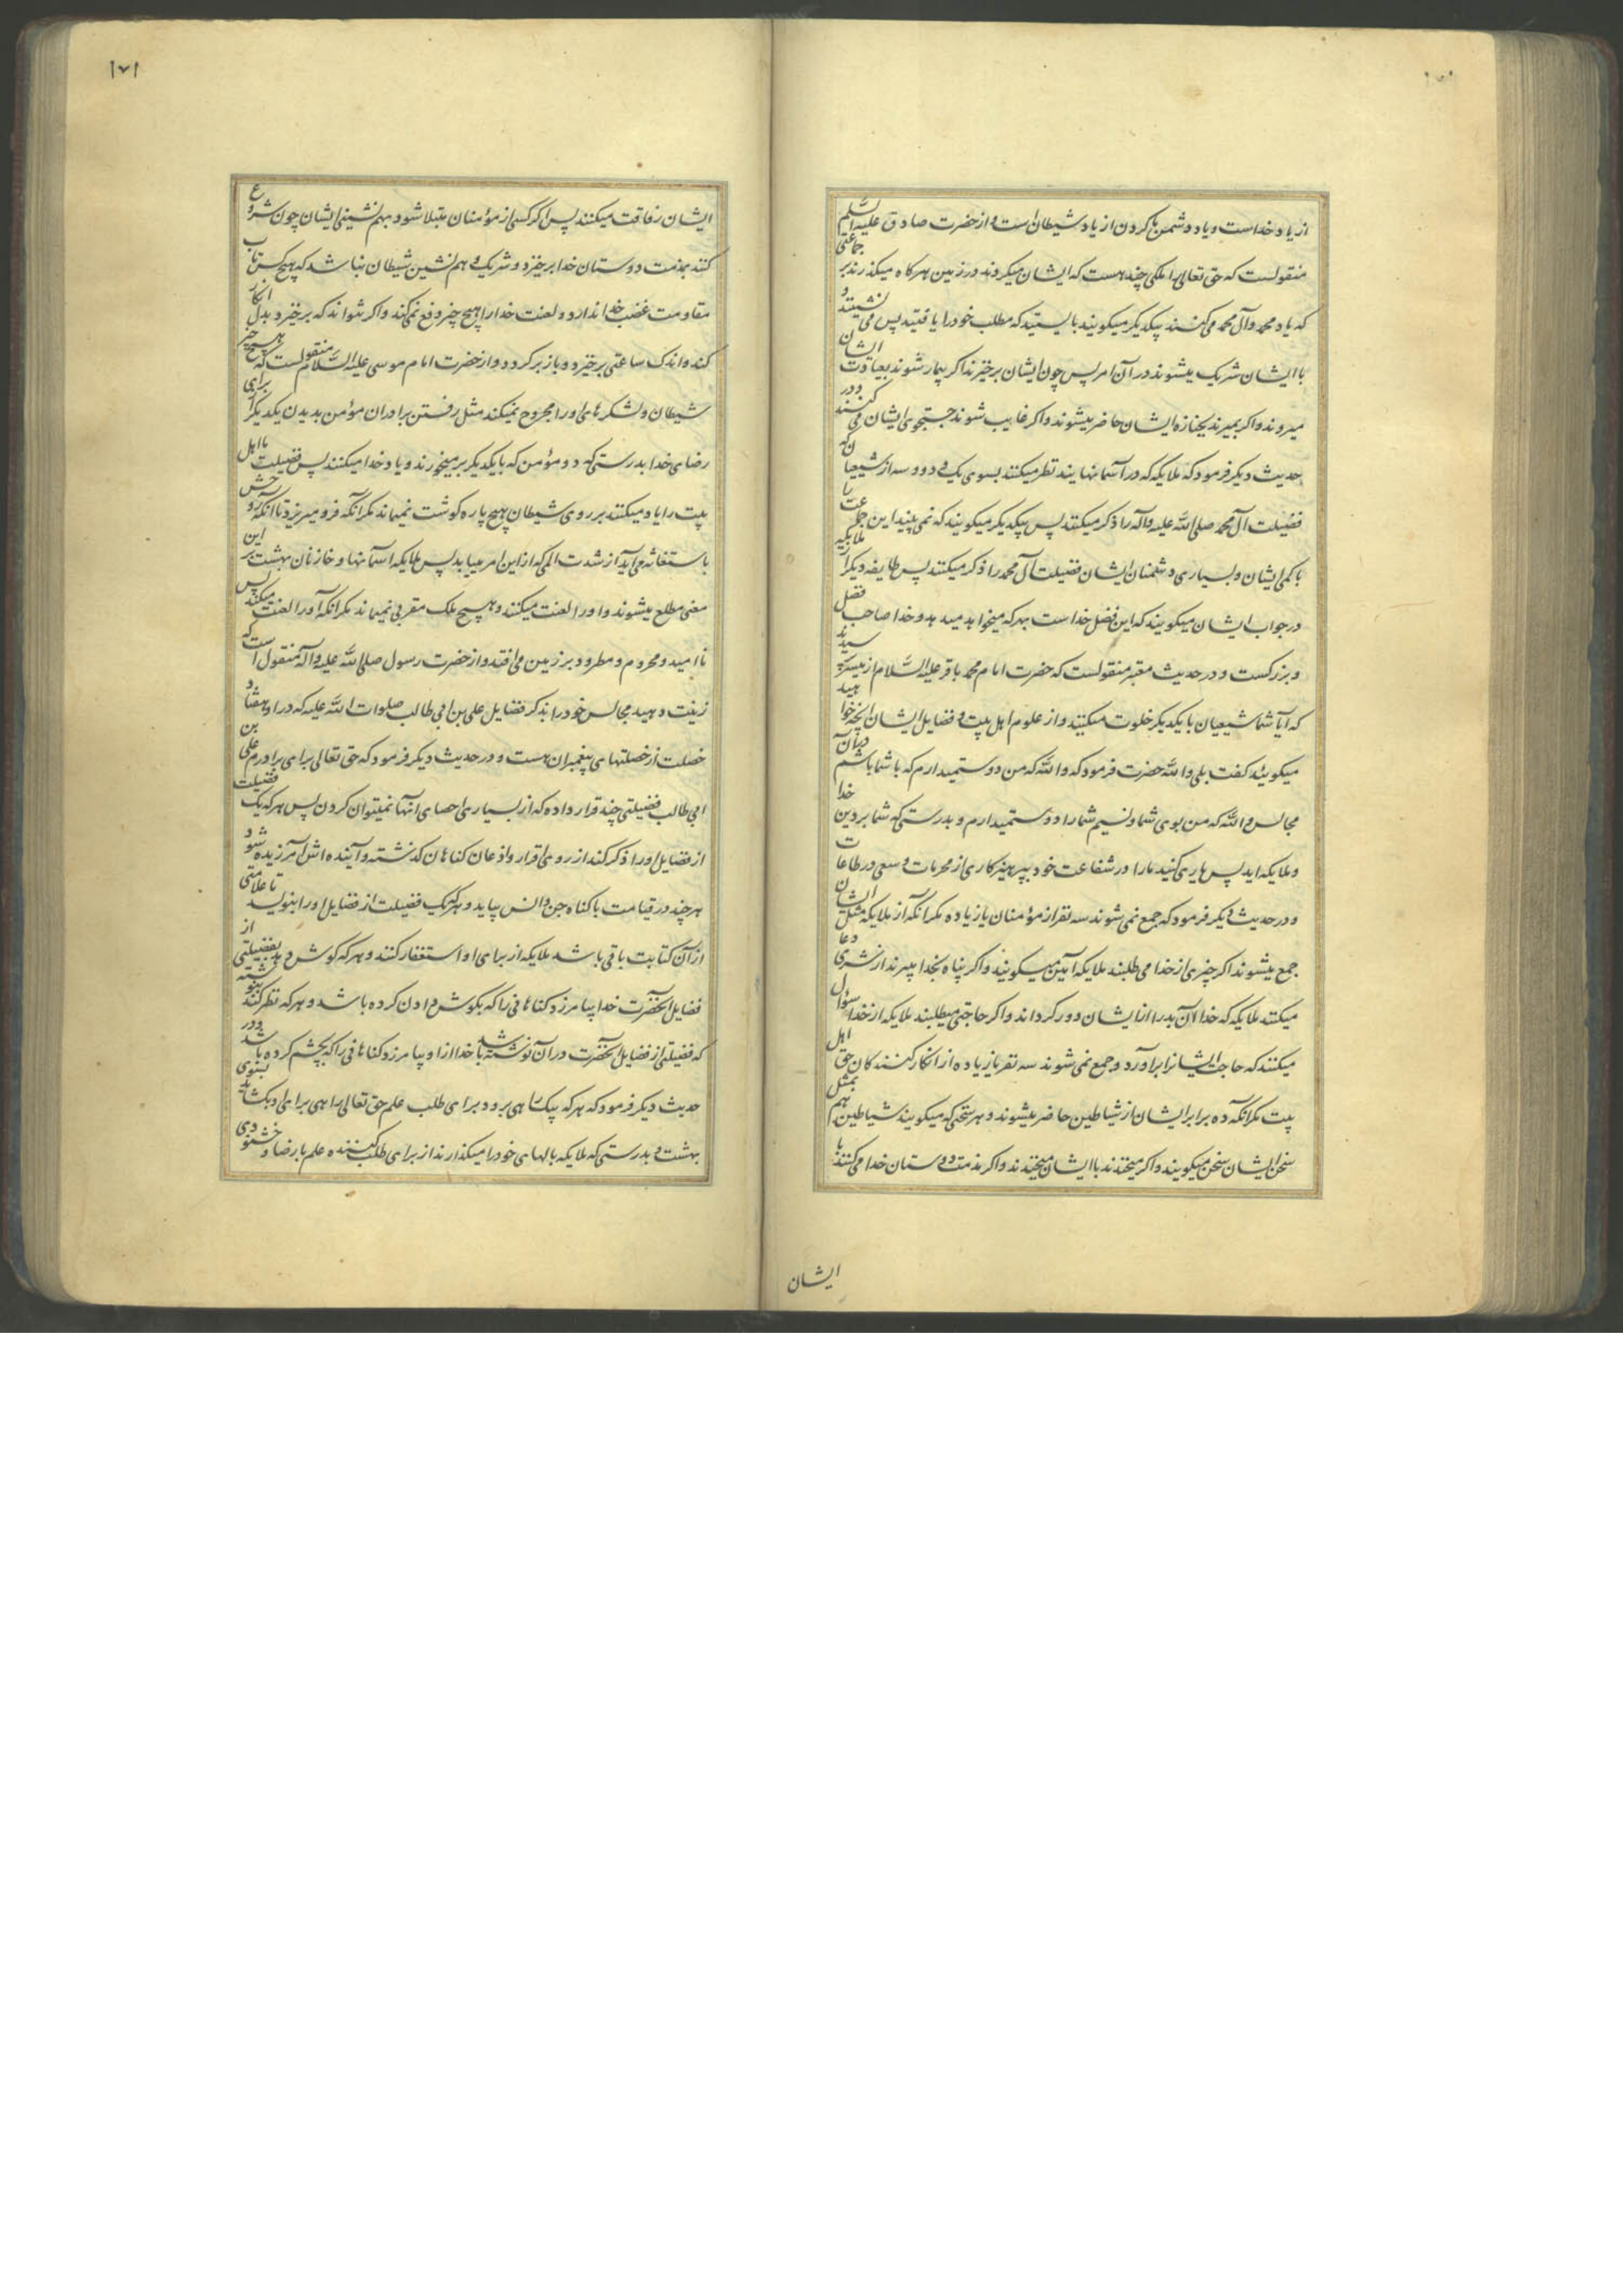 از یاد خداست و یاد دشمن ما کردن از یاد شیطان است و از حضرت صادق علیه السلم
منقولست که حق تعالی را ملکی چند هست که ایشان میکردند در زمین هرکاه میکذرند بر جماعتی
که یاد محمد و آل محمد می کنند پیکدیکر میکویند بایستید که مطلب خود را یافتید پس می نشینند و
با ایشان شریک میشوند در آن امر پس چون ایشان برخیزند اکر بیمار شوند بعیادت ایشان
میروند و اکر بمیرند بجنازه ایشان حاضر میشوند و اکر غایب شوند جستجوی ایشان می کنند و در
حدیث دیکر فرمود که ملایکه که در آسمانهایند نظر میکنند بسوی یک و دو و سه از شیعیان که
فضیلت آل محمد صلی الله علیه و آله را ذکر میکنند پس پیکدیکر میکویند که نمی بینید این جماعت را
با کمی ایشان و بسیاری دشمنان ایشان فضیلت آل محمد را ذکر میکنند پس طایفه دیکر از ملایکه
در جواب ایشان میکویند که این فضل خداست بهر که میخواهد میدهد و خدا صاحب فضل
و بزرکست و در حدیث معتبر منقولست که حضرت امام محمد باقر علیه السلام از میسر پرسیدند
که آیا شما شیعیان با یکدیکر خلوت میکنید و از علوم اهل بیت و فضایل ایشان آنچه خواهید
میکویید کفت بلی والله حضرت فرمود که والله که من دوست میدارم که با شما باشم در آن
مجالس والله که من بوی شما و نسیم شما را دوست میدارم و بدرستی که شما بر دین خدا
و ملایکه اید پس یاری کنید ما را در شفاعت خود بپرهیزکاری از محرمات و سعی در طاعات
و در حدیث دیکر فرمود که جمع نمی شوند سه نفر از مؤمنان یا زیاده مکر آنکه از ملایکه مثل ایشان
جمع میشوند اکر چیزی از خدا می طلبند ملایکه آمین میکویند و اکر پناه بخدا میبرند از شری دعا
میکنند ملایکه که خدا آن بد را از ایشان دور کرداند و اکر حاجتی میطلبند ملایکه از خدا سؤال
میکنند که حاجت ایشانرا برآورد و جمع نمی شوند سه نفر یا زیاده از انکار کنندکان حق اهل
بیت مکر آنکه ده برابر ایشان از شیاطین حاضر میشوند و هر سخنی که میکویند شیاطین هم بمثل
سخن ایشان سخن میکویند و اکر میخندند با ایشان میخندند و اکر مذمت دوستان خدا می کنند با
ایشان
١٧١
ایشان رفاقت میکنند پس اکر کسی از مؤمنان مبتلا شود بهم نشینی ایشان چون شروع
کنند بمذمت دوستان خدا برخیزد و شریک و هم نشین شیطان نباشد که هیچ کس تاب
مقاومت غضب خدا ندارد و لعنت خدا را هیچ چیز دفع نمی کند و اکر نتواند که برخیزد بدل انکار
کند و اندک ساعتی برخیزد و باز برکردد و از حضرت امام موسی علیه السلام منقولست که هیچ چیز
شیطان و لشکرهای او را مجروح نمیکند مثل رفتن برادران مؤمن بدیدن یکدیکر از برای
رضای خدا بدرستی که دو مؤمن که بایکدیکر برمیخورند و یاد خدا میکنند پس فضیلت ما اهل
بیت را یاد میکنند بر روی شیطان هیچ پاره کوشت نمیماند مکر آنکه فرو میریزد تا آنکه روحش
باستغاثه می آید از شدت المی که از این امر مییابد پس ملایکه آسمانها و خازنان بهشت بر این
معنی مطلع میشوند و او را لعنت میکنند و هیچ ملک مقربی نمیماند مکر آنکه او را لعنت میکند پس
نا امید و محروم و مطرود بر زمین می افتد و از حضرت رسول صلی الله علیه و آله منقول است که
زینت دهید مجالس خود را بذکر فضایل علی بن ابی طالب صلوات الله علیه که در او هفتاد
خصلت از خصلتهای پیغمبران هست و در حدیث دیکر فرمود که حق تعالی برای برادرم علی بن
ابی طالب فضیلتی چند قرار داده که از بسیاری احصای انها نمیتوان کردن پس هرکه یک فضیلت
از فضایل او را ذکر کند از روی اقرار و اذعان کناهان کذشته و آینده اش آمرزیده شود
هرچند در قیامت با کناه جن و انس بیاید و هرکه یک فضیلت از فضایل او را بنویسد تا علامتی
از آن کتابت باقی باشد ملایکه از برای او استغفار کنند و هرکه کوش دهد بفضیلتی از
فضایل آنحضرت خدا بیامرزد کناهانی را که بکوش دادن کرده باشد و هرکه نظر کند بنوشته
که فضیلتی از فضایل آنحضرت در آن نوشته باشد خدا از او بیامرزد کناهانی را که بچشم کرده باشد و در
حدیث دیکر فرمود که هرکه یک راهی برود برای طلب علم حق تعالی راهی برای او بکشاید بسوی
بهشت و بدرستی که ملایکه بالهای خود را میکذارند از برای طلب کننده علم با رضا و خشنودی